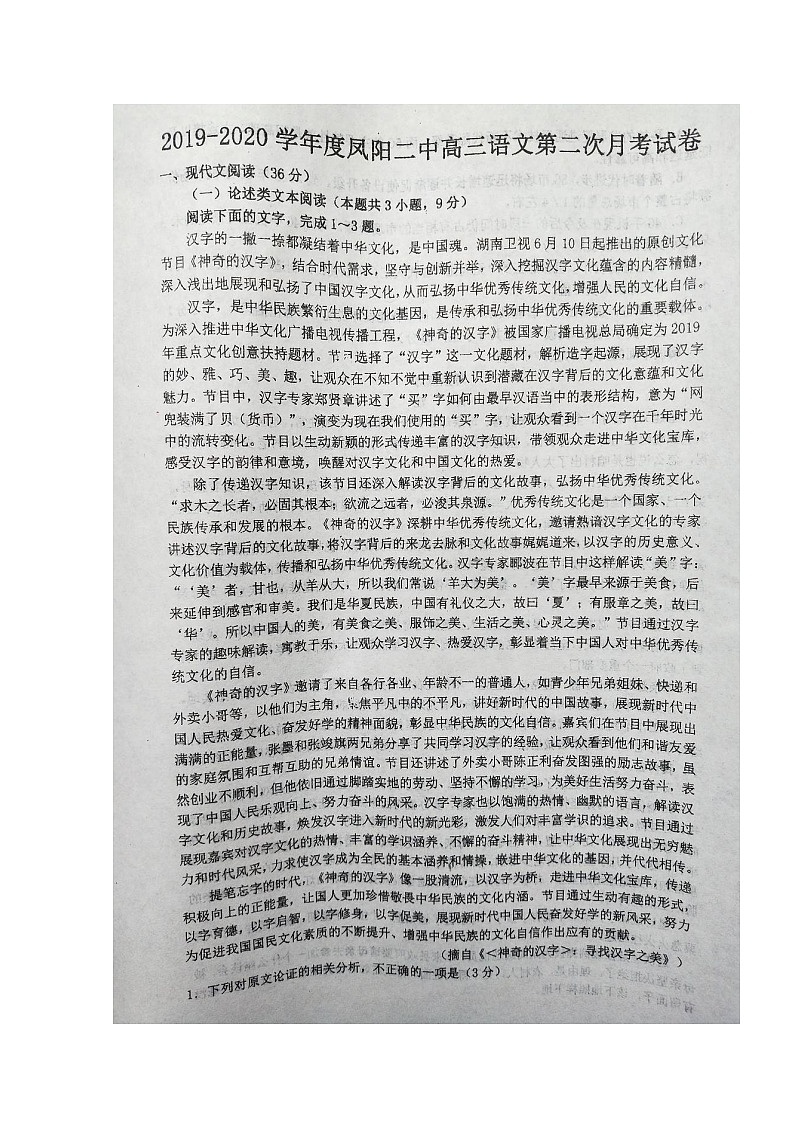 2019-2020 学年度凤阳二中高三语文第二次月考试卷
一、现代文阅读(36 分)
（一）论述类文本阅读（本题共 3 小题，9 分）
阅读下面的文字，完成 1～3 题。
汉字的一撇一捺都凝结着中华文化，是中国魂。湖南卫视 6 月 10 日起推出的原创文化
节目《神奇的汉字》，结合时代需求，坚守与创新并举，深入挖掘汉字文化蕴含的内容精髓，
深入浅出地展现和弘扬了中国汉字文化，从而弘扬中华优秀传统文化，增强人民的文化自信。
汉字，是中华民族繁衍生息的文化基因，是传承和弘扬中华优秀传统文化的重要载体。
为深入推进中华文化广播电视传播工程，《神奇的汉字》被国家广播电视总局确定为 2019
年重点文化创意扶持题材。节目选择了“汉字”这一文化题材，解析造字起源，展现了汉字
的妙、雅、巧、美、趣，让观众在不知不觉中重新认识到潜藏在汉字背后的文化意蕴和文化
魅力。节目中，汉字专家郑贤章讲述了“买”字如何由最早汉语当中的表形结构，意为“网
兜装满了贝（货币）”，演变为现在我们使用的“买”字，让观众看到一个汉字在千年时光
中的流转变化。节目以生动新颖的形式传递丰富的汉字知识，带领观众走进中华文化宝库，
感受汉字的韵律和意境，唤醒对汉字文化和中国文化的热爱。
除了传递汉字知识，该节目还深入解读汉字背后的文化故事，弘扬中华优秀传统文化。
“求木之长者，必固其根本；欲流之远者，必浚其泉源。”优秀传统文化是一个国家、一个
民族传承和发展的根本。《神奇的汉字》深耕中华优秀传统文化，邀请熟谙汉字文化的专家
讲述汉字背后的文化故事，将汉字背后的来龙去脉和文化故事娓娓道来，以汉字的历史意义、
文化价值为载体，传播和弘扬中华优秀传统文化。汉字专家郦波在节目中这样解读“美”字：
“‘美’者，甘也，从羊从大，所以我们常说‘羊大为美’。‘美’字最早来源于美食，后
来延伸到感官和审美。我们是华夏民族，中国有礼仪之大，故曰‘夏’；有服章之美，故曰
‘华’。所以中国人的美，有美食之美、服饰之美、生活之美、心灵之美。”节目通过汉字
专家的趣味解读，寓教于乐，让观众学习汉字、热爱汉字，彰显着当下中国人对中华优秀传
统文化的自信。
《神奇的汉字》邀请了来自各行各业、年龄不一的普通人，如青少年兄弟姐妹、快递和
外卖小哥等，以他们为主角，聚焦平凡中的不平凡，讲好新时代的中国故事，展现新时代中
国人民热爱文化、奋发好学的精神面貌，彰显中华民族的文化自信。嘉宾们在节目中展现出
满满的正能量，张墨和张竣旗两兄弟分享了共同学习汉字的经验，让观众看到他们和谐友爱
的家庭氛围和互帮互助的兄弟情谊。节目还讲述了外卖小哥陈正利奋发图强的励志故事，虽
然创业不顺利，但他依旧通过脚踏实地的劳动、坚持不懈的学习，为美好生活努力奋斗，表
现了中国人民乐观向上、努力奋斗的风采。汉字专家也以饱满的热情、幽默的语言，解读汉
字文化和历史故事，焕发汉字进入新时代的新光彩，激发人们对丰富学识的追求。节目通过
展现嘉宾对汉字文化的热情、丰富的学识涵养、不懈的奋斗精神，让中华文化展现出无穷魅
力和时代风采，力求使汉字成为全民的基本涵养和情操，嵌进中华文化的基因，并代代相传。
提笔忘字的时代，《神奇的汉字》像一股清流，以汉字为桥，走进中华文化宝库，传递
积极向上的正能量，让国人更加珍惜敬畏中华民族的文化内涵。节目通过生动有趣的形式，
以字育德，以字启智，以字修身，以字促美，展现新时代中国人民奋发好学的新风采，努力
为促进我国国民文化素质的不断提升、增强中华民族的文化自信作出应有的贡献。
（摘自《<神奇的汉字>：寻找汉字之美》）
1．下列对原文论证的相关分析，不正确的一项是(3 分)